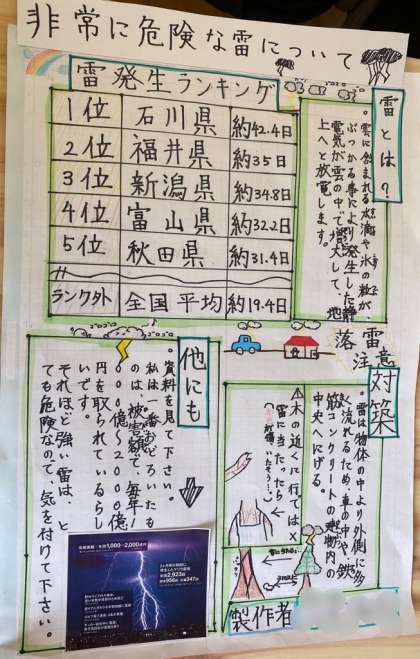 非常に危険な雷について
雷発生ランキング
1位 石川県 約42.4日
2位 福井県 約35日
3位 新潟県 約34.8日
4位 富山県 約32.2日
5位 秋田県 約31.4日
ランク外 全国平均 約19.4日
雷とは?
・雲に含まれる水滴や氷の粒が、
ぶつかる事により発生した静
電気が雲の中で増大して、地
上へと放電します。
落雷
注意
対策
・雷は物体の中より外側に多
く流れるため、車の中や、鉄
筋コンクリートの建物内の
中央へにげる。
⚠木の近くに行ては×
雷に当たったら
他にも
・資料を見て下さい。
私は一番おどろいたも
のは、被害額で、毎年1
000億〜2000億
円を取られているらし
いです。
それほど強い雷は、と
ても危険なので、気を付けて下さい。
1,000〜2,000億円
製作者